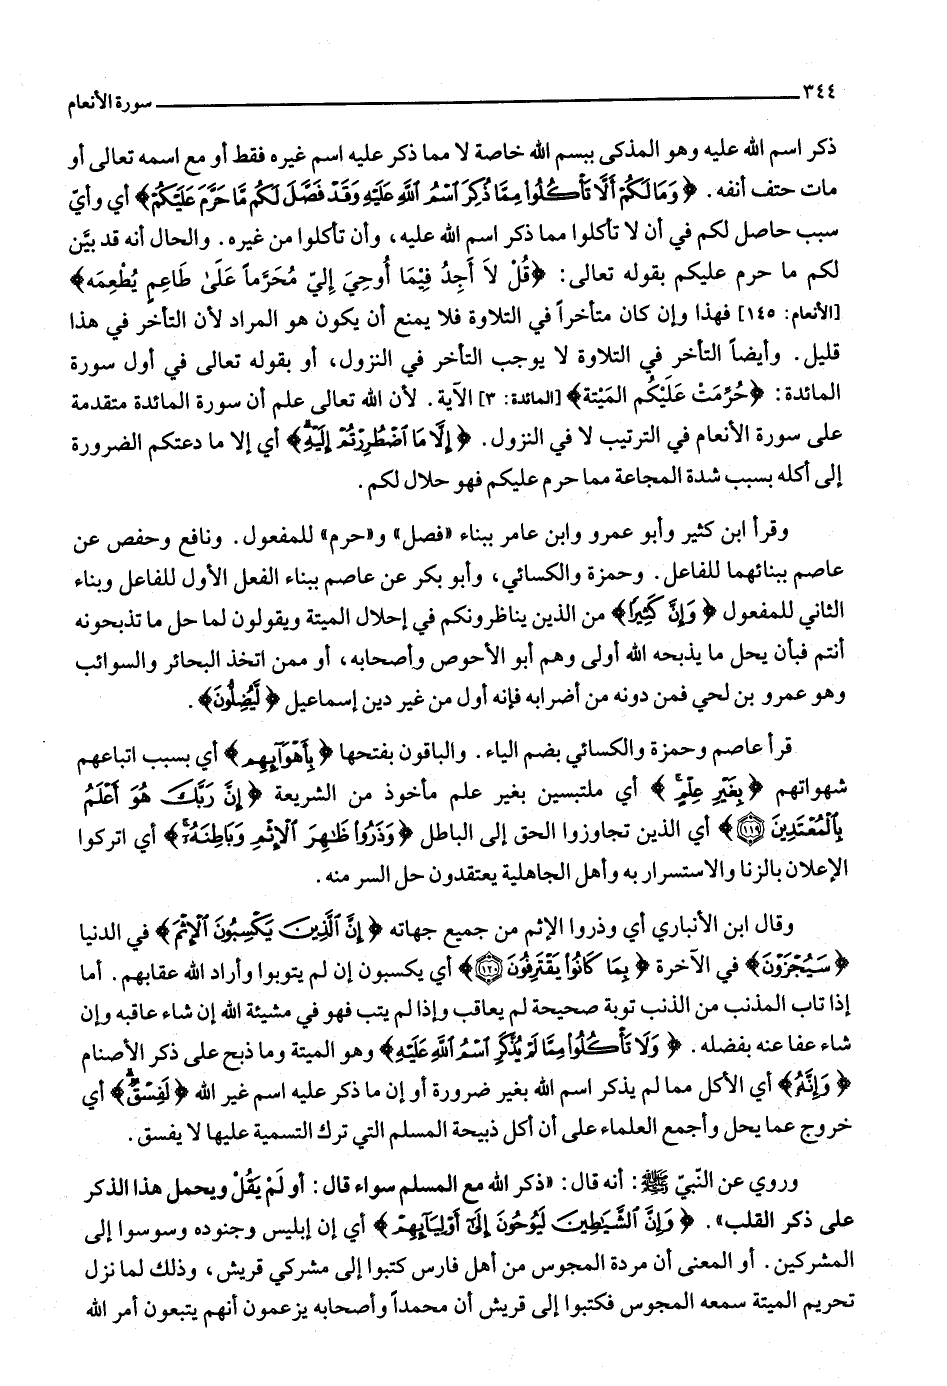 ٣٤٤ سورة الأنعام
ذكر اسم الله عليه وهو المذكى ببسم الله خاصة لا مما ذكر عليه اسم غيره فقط أو مع اسمه تعالى أو
مات حتف أنفه. ﴿وَمَا لَكُمْ أَلَّا تَأْكُلُوا مِمَّا ذُكِرَ اسْمُ اللَّهِ عَلَيْهِ وَقَدْ فَصَّلَ لَكُم مَّا حَرَّمَ عَلَيْكُمْ﴾ أي وأيّ
سبب حاصل لكم في أن لا تأكلوا مما ذكر اسم الله عليه، وأن تأكلوا من غيره. والحال أنه قد بيَّن
لكم ما حرم عليكم بقوله تعالى: ﴿قُلْ لاَ أَجِدُ فِيْمَا أُوحِيَ إِليّ مُحَرَّماً عَلَىٰ طَاعِمٍ يُطْعِمَه﴾
[الأنعام: ١٤٥] فهذا وإن كان متأخراً في التلاوة فلا يمنع أن يكون هو المراد لأن التأخر في هذا
قليل. وأيضاً التأخر في التلاوة لا يوجب التأخر في النزول، أو بقوله تعالى في أول سورة
المائدة: ﴿حُرِّمَتْ عَلَيْكُم المَيْتة﴾ [المائدة: ٣] الآية. لأن الله تعالى علم أن سورة المائدة متقدمة
على سورة الأنعام في الترتيب لا في النزول. ﴿إِلَّا مَا اضْطُرِرْتُمْ إِلَيْهِ﴾ أي إلا ما دعتكم الضرورة
إلى أكله بسبب شدة المجاعة مما حرم عليكم فهو حلال لكم.
وقرأ ابن كثير وأبو عمرو وابن عامر ببناء «فصل» و«حرم» للمفعول. ونافع وحفص عن
عاصم ببنائهما للفاعل. وحمزة والكسائي، وأبو بكر عن عاصم ببناء الفعل الأول للفاعل وبناء
الثاني للمفعول ﴿وَإِنَّ كَثِيرًا﴾ من الذين يناظرونكم في إحلال الميتة ويقولون لما حل ما تذبحونه
أنتم فبأن يحل ما يذبحه الله أولى وهم أبو الأحوص وأصحابه، أو ممن اتخذ البحائر والسوائب
وهو عمرو بن لحي فمن دونه من أضرابه فإنه أول من غير دين إسماعيل ﴿لَّيُضِلُّونَ﴾.
قرأ عاصم وحمزة والكسائي بضم الياء. والباقون بفتحها ﴿بِأَهْوَآئِهِم﴾ أي بسبب اتباعهم
شهواتهم ﴿بِغَيْرِ عِلْمٍ﴾ أي ملتبسين بغير علم مأخوذ من الشريعة ﴿إِنَّ رَبَّكَ هُوَ أَعْلَمُ
بِالْمُعْتَدِينَ ١١٩﴾ أي الذين تجاوزوا الحق إلى الباطل ﴿وَذَرُوا ظَاهِرَ الْإِثْمِ وَبَاطِنَهُ﴾ أي اتركوا
الإعلان بالزنا والاستسرار به وأهل الجاهلية يعتقدون حل السر منه.
وقال ابن الأنباري أي وذروا الإثم من جميع جهاته ﴿إِنَّ الَّذِينَ يَكْسِبُونَ الْإِثْمَ﴾ في الدنيا
﴿سَيُجْزَوْنَ﴾ في الآخرة ﴿بِمَا كَانُوا يَقْتَرِفُونَ ١٢٠﴾ أي يكسبون إن لم يتوبوا وأراد الله عقابهم. أما
إذا تاب المذنب من الذنب توبة صحيحة لم يعاقب وإذا لم يتب فهو في مشيئة الله إن شاء عاقبه وإن
شاء عفا عنه بفضله. ﴿وَلَا تَأْكُلُوا مِمَّا لَمْ يُذْكَرِ اسْمُ اللَّهِ عَلَيْهِ﴾ وهو الميتة وما ذبح على ذكر الأصنام
﴿وَإِنَّهُ﴾ أي الأكل مما لم يذكر اسم الله بغير ضرورة أو إن ما ذكر عليه اسم غير الله ﴿لَفِسْقٌ﴾ أي
خروج عما يحل وأجمع العلماء على أن أكل ذبيحة المسلم التي ترك التسمية عليها لا يفسق.
وروي عن النّبيّ ﷺ: أنه قال: «ذكر الله مع المسلم سواء قال: أو لَمْ يَقُلْ ويحمل هذا الذكر
على ذكر القلب». ﴿وَإِنَّ الشَّيَاطِينَ لَيُوحُونَ إِلَىٰ أَوْلِيَآئِهِمْ﴾ أي إن إبليس وجنوده وسوسوا إلى
المشركين. أو المعنى أن مردة المجوس من أهل فارس كتبوا إلى مشركي قريش، وذلك لما نزل
تحريم الميتة سمعه المجوس فكتبوا إلى قريش أن محمداً وأصحابه يزعمون أنهم يتبعون أمر الله